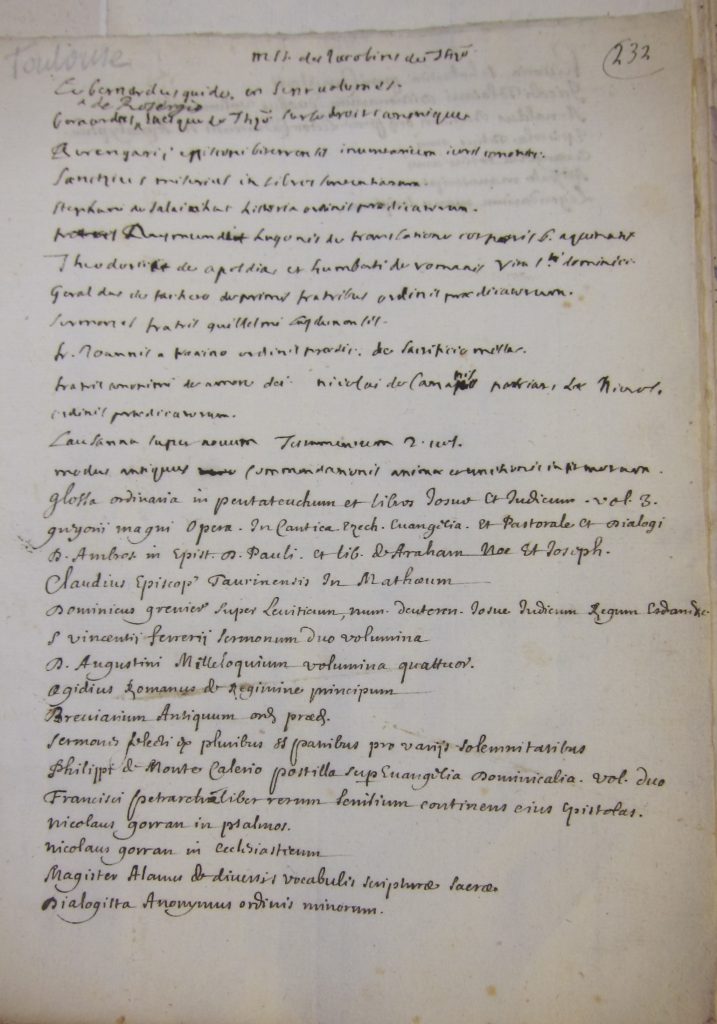 Toulouse
mss. des Jacobins de Thze
232
Le bernardus guido. en sept volumes.
de Rosergio
bernardus Evesque de Thze sur le droit canonique
Berengarij episcopi biterrensis inventarium iuris canonici.
Sanctius mulerius in libros sententiarum.
Stephani de Salaihac historia ordinis prædicatorum.
Raymundi hugonis de translatione corporis b. aquinatis
Theodorici de apoldia et humberti de romanis vita sti dominici.
Geraldus de fracheto de primis fratribus ordinis prædicatorum.
Sermones fratris guillelmi lugdunensis.
fr. Joannis a ordinis prædic. de sacrificio missæ.
fratris anonimi de amore dei. nicolai de
ordinis prædicatorum.
Lausanna super novum Testamentum 2. vol.
modus antiquus commendationis animæ
glossa ordinaria in pentateuchum et libros Iosue Et Iudicum. vol. 3.
gregorii magni Opera. In Cantica Ezech. Euangilia. Et Pastorale Et Dialogi
D. Ambros. in Epist. D. Pauli. et lib. de Araham Noe Et Ioseph.
Claudius Episcop' Taurinensis In Mathæum
Dominicus grenier super Leviticum, num. deuteron. Iosue Iudicum Regum Esdam &c.
S vincentij ferrerij sermonum duo volumina
D. Augustini Milleloquium volumina quattuor.
Ægidius Romanus de Regimine principum
Breviarium Antiquum ord. præd.
Sermones selecti ex pluribus ss patribus pro varijs solemnitatibus
Philippi de Monte Calerio postilla sup Euangilia Dominicalia. vol. duo
Francisci petrarchæ liber rerum senilium continens eius Epistolas.
Nicolaus gorran in psalmos.
Nicolaus gorran in Ecclesiasticum
Magister Alanus de diversis vocabulis scripturæ sacræ.
Dialogista Anonymus ordinis minorum.